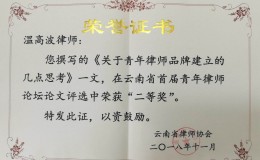 荣誉证书
温高波律师：
您撰写的《关于青年律师品牌建立的
几点思考》一文，在云南省首届青年律师
论坛论文评选中荣获“二等奖”。
特发此证，以资鼓励。
云南省律师协会
二〇一八年十一月